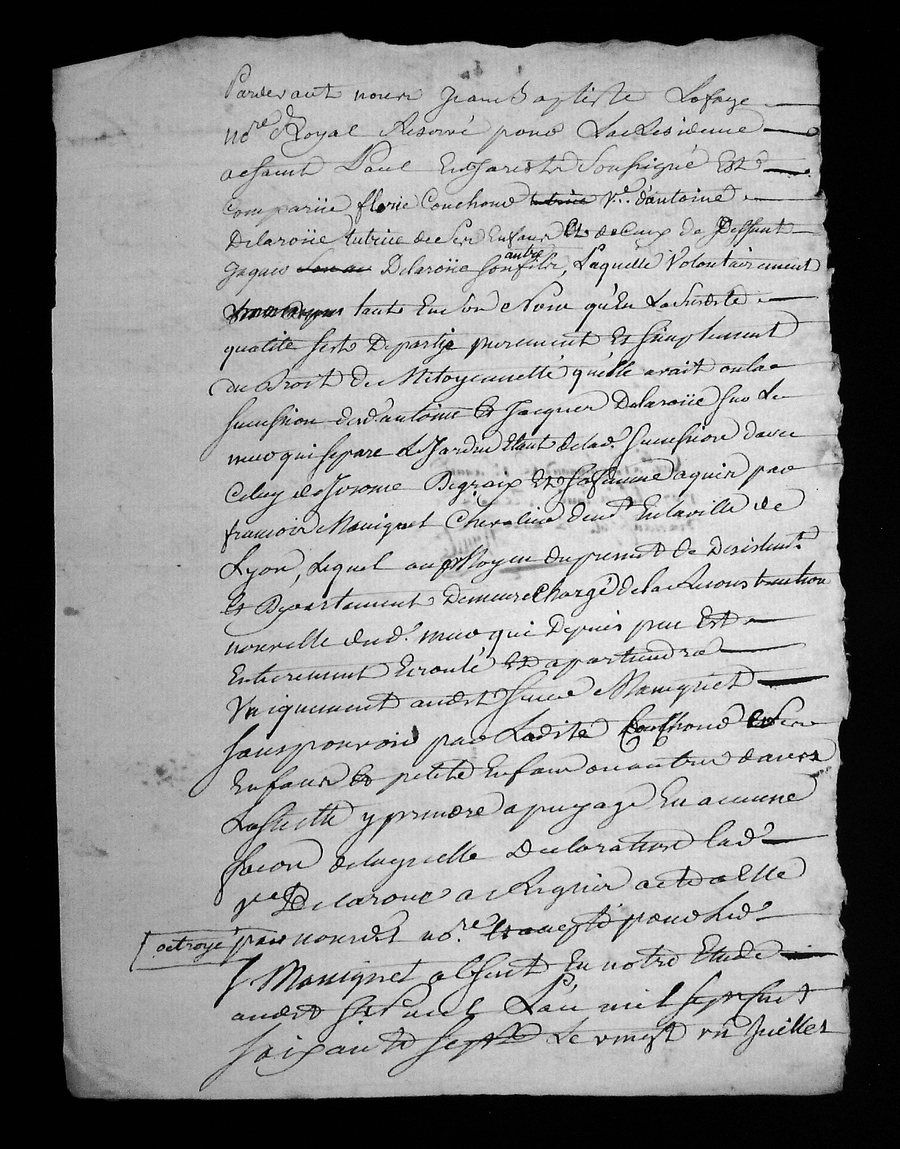 Pardevant nous Jean Baptiste Lafaye
no.re Royal Reservé pour La Residence
de saint Paul En Jarest soussigné Est
comparüe florie Couchoud tutrice V.e d'antoine
Delaroüe tutrice de ses Enfans Et de Ceux de Deffunt
Jaques Delaroüe son autre fils, Laquelle Volontairement
tant En son Nom qu'En La susdte
qualité s'est Departie purement Et simplement
du Droit de Mitoyenneté qu'elle avait ou la
succession desd. antoine Et Jacques Delaroüe sur Le
mur qui separe Le Jardin Etant de lad. succession d'avec
Celuy de Jerome Degraix Et sa femme aquis par
francois Maniquet Chevalier dem.t En la ville de
Lyon, Lequel au Moyen du present de Desistem.t
Et Departement Demeure Chargé de la Reconstruction
nouvelle dud. mur qui Depuis peu Est
Entierement Ecroulé Et apartiendra
Uniquement audt sieur Maniquet
sans pouvoir par Ladite Couchoud Et ses
Enfans Et petits Enfans ou autres
y prendre apuyage En aucune
facon de laquelle Declaration lad.
V.e Delaroüe a Requis acte a Elle
octroyé
par nousdt no.re Et accepté pour Led.
s.r Maniquet absent En notre Etude
audt St Paul L'an mil sept cent
soixante sept Le vingt un Juillet